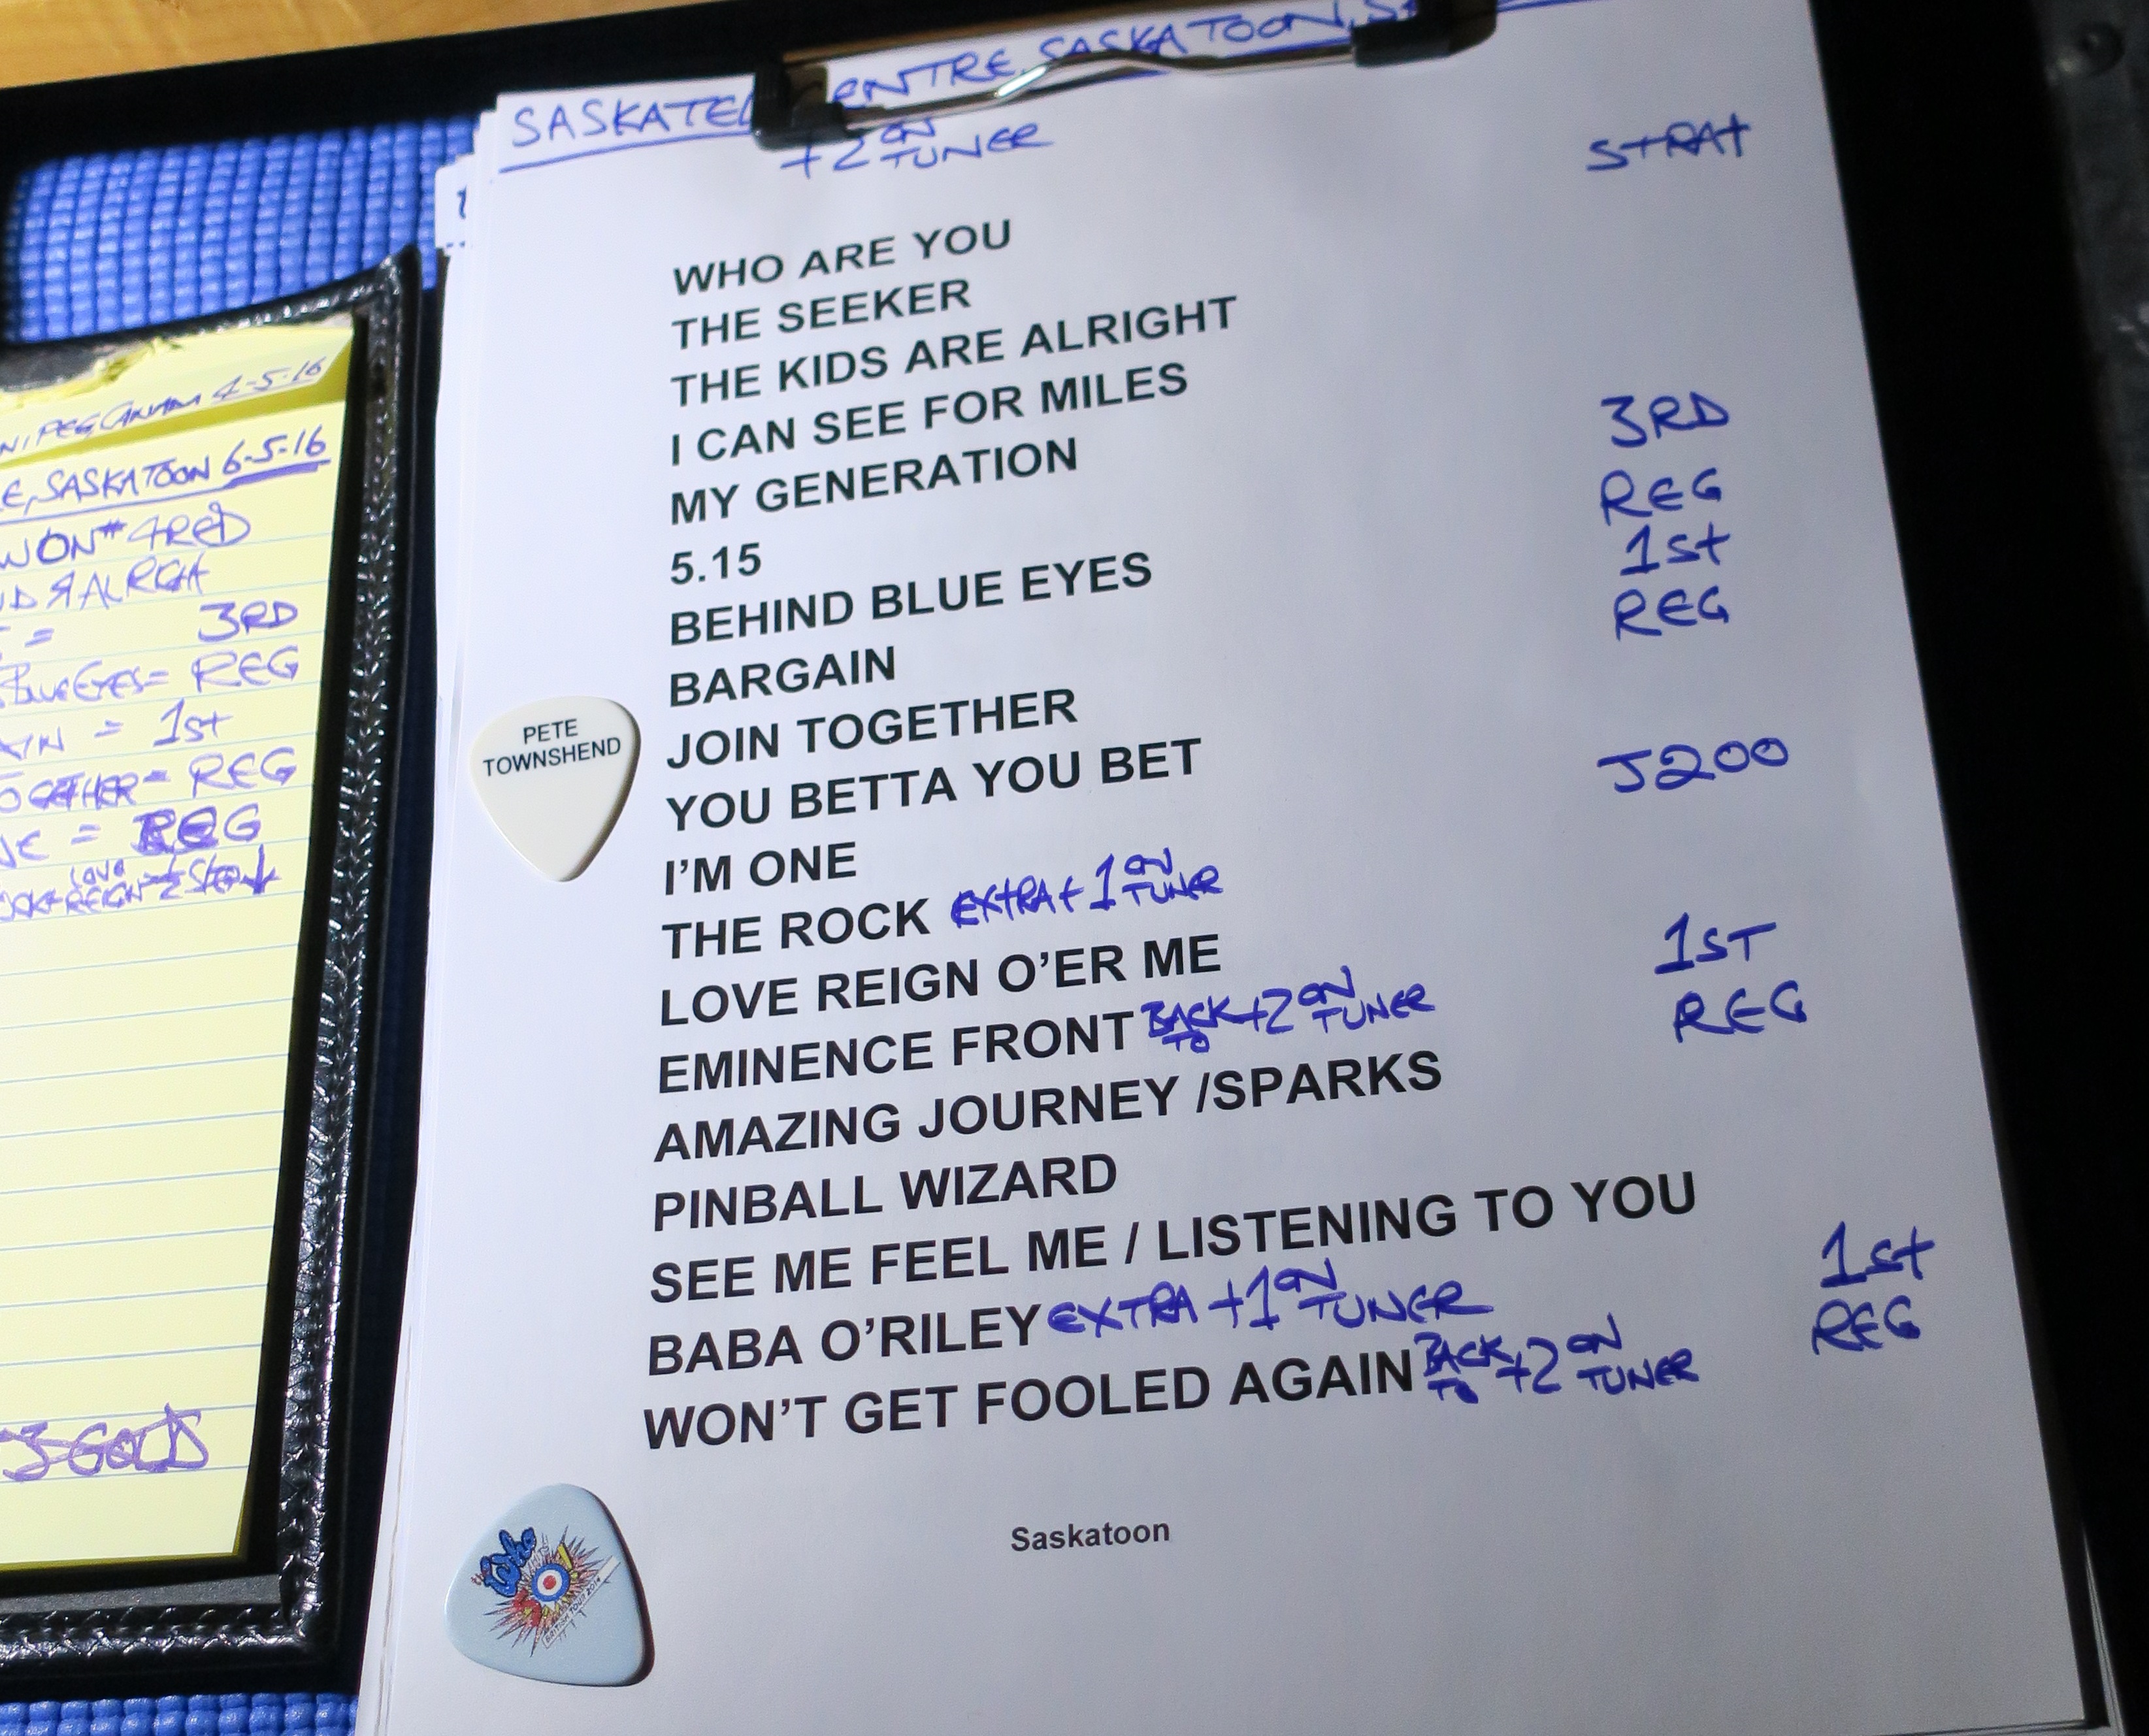 SASKATEL ENTRE, SASKATOON, S
+2 ON TUNER
STRAT
WHO ARE YOU
THE SEEKER
THE KIDS ARE ALRIGHT
I CAN SEE FOR MILES
MY GENERATION
5.15 3RD
BEHIND BLUE EYES REG
BARGAIN 1st
JOIN TOGETHER REG
YOU BETTA YOU BET
I'M ONE J200
THE ROCK EXTRA + 1 ON TUNER
LOVE REIGN O'ER ME 1ST
EMINENCE FRONT BACK TO +2 ON TUNER REG
AMAZING JOURNEY /SPARKS
PINBALL WIZARD
SEE ME FEEL ME / LISTENING TO YOU
BABA O'RILEY EXTRA +1 ON TUNER 1st
WON'T GET FOOLED AGAIN BACK TO +2 ON TUNER REG
Saskatoon
PETE
TOWNSHEND
the Who
BRITISH TOUR 2014
4-5-16
E, SASKATOON 6-5-16
WON #4 RED
ALRIGHT
= 3RD
BLUE EYES = REG
AIN = 1st
OGETHER = REG
NE = REG
LOVE
REIGN
GOLD